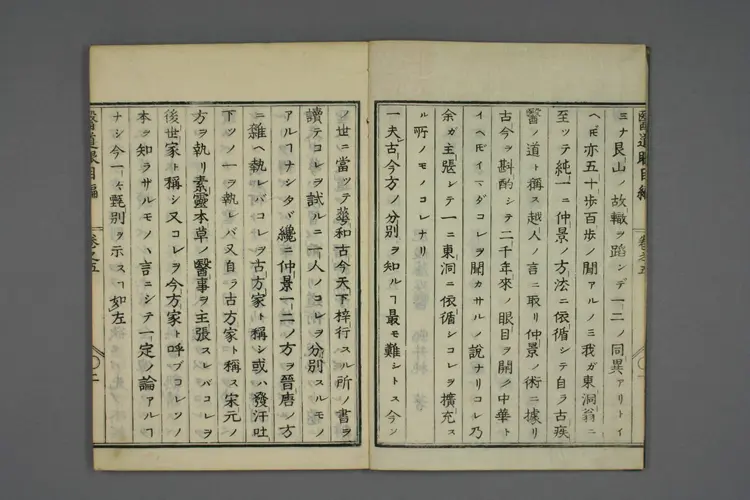 ミナ艮山ノ故轍ヲ蹈ンデ一二ノ同異アリトイ
ヘ𪜈亦五十歩百歩ノ間アルノミ我ガ東洞翁ニ
至ツテ純一ニ仲景ノ方法ニ依循シテ自ラ古疾
醫ノ道ト稱ス越人ノ言ニ取リ仲景ノ術ニ據リ
古今ヲ斟酌シテ二千年來ノ眼目ヲ開ク中華ト
イヘ𪜈イマダコレヲ聞カサルノ說ナリコレ乃
余ガ主張シテ一ニ東洞ニ依循シコレヲ擴充ス
ル所ノモノコレナリ
一夫古今方ノ分別ヲ知ルヿ最モ難シトス今ソ
ノ世ニ當ツテ華和古今天下梓行スル所ノ書ヲ
讀テコレヲ試ルニ一人ノコレヲ分別スルモノ
アルヿナシタバ纔ニ仲景一二ノ方ヲ晉唐ノ方
ニ雜ヘ執レバコレヲ古方家ト稱シ或ハ發汗吐
下ツノ一ヲ執レバ又自ラ古方家ト稱ス宋元ノ
方ヲ執リ素靈本草ノ醫事ヲ主張スレバコレヲ
後世家ト稱シ又コレヲ今方家ト呼ブコレソノ
本ヲ知ラサルモノノ言ニシテ一定ノ論アルヿ
ナシ今一々甄別ヲ示スヿ如左
醫道眼目編 卷之五
醫道眼目編 卷之五 二